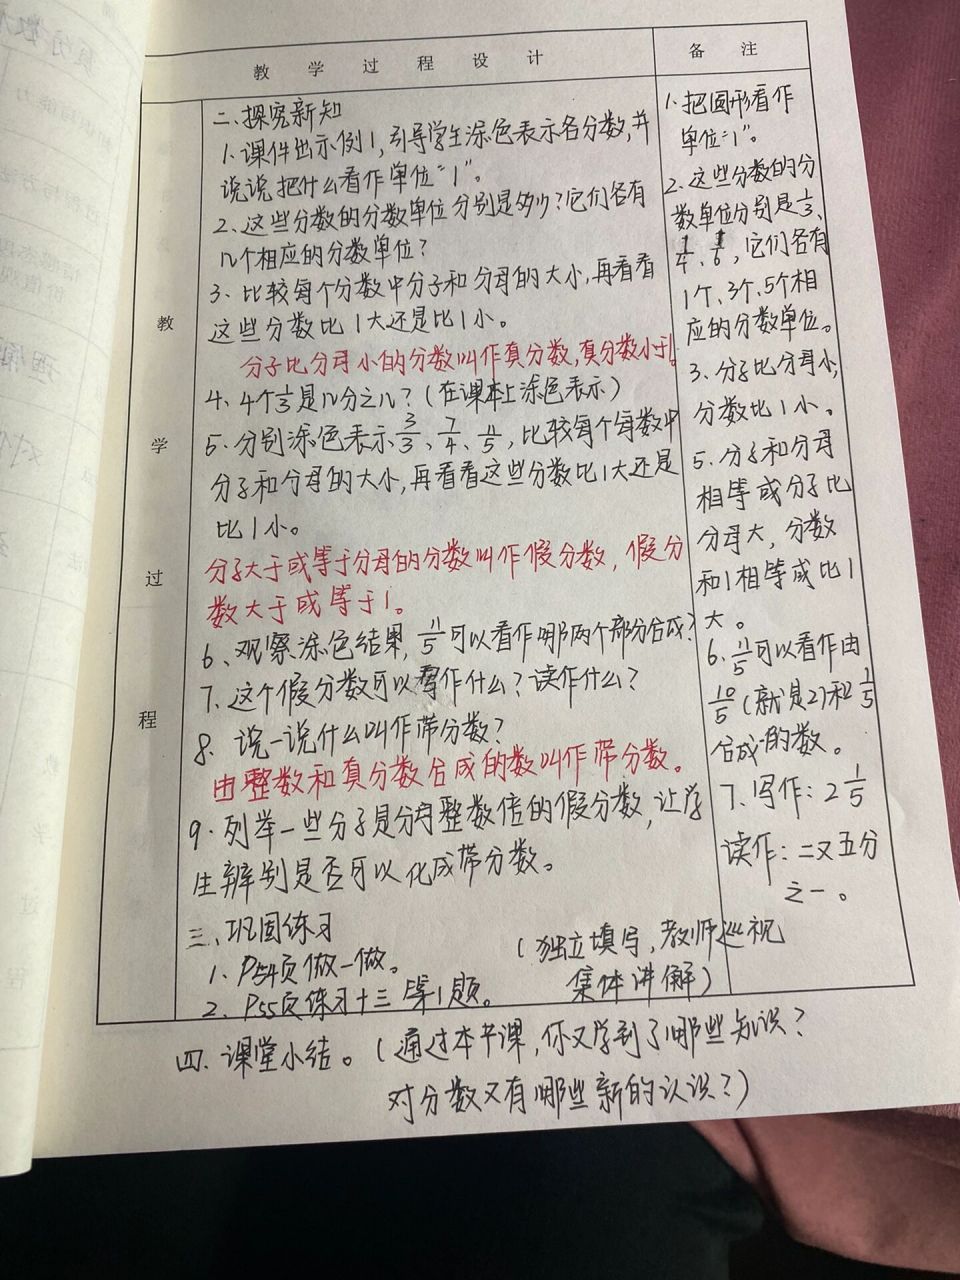 教 学 过 程 设 计
备 注
教
学
过
程
二、探究新知
1、课件出示例1,引导学生涂色表示各分数,并
说说把什么看作单位“1”。
2、这些分数的分数单位分别是多少?它们各有
几个相应的分数单位?
3、比较每个分数中分子和分母的大小,再看看
这些分数比1大还是比1小。
分子比分母小的分数叫作真分数,真分数小于1。
4、4个1/3是几分之几?(在课本上涂色表示)
5、分别涂色表示3/3、7/4、11/5,比较每个分数中
分子和分母的大小,再看看这些分数比1大还是
比1小。
分子大于或等于分母的分数叫作假分数,假分
数大于或等于1。
6、观察涂色结果,11/5可以看作哪两个部分合成?
7、这个假分数可以写作什么?读作什么?
8、说一说什么叫作带分数?
由整数和真分数合成的数叫作带分数。
9、列举一些分子是分母整数倍的假分数,让学
生辨别是否可以化成带分数。
三、巩固练习
1、P54页做一做。
2、P55页练习十三第1题。
(独立填写,教师巡视
集体讲解)
1、把圆形看作
单位“1”。
2、这些分数的分
数单位分别是1/3、
1/4、1/6,它们各有
1个、3个、5个相
应的分数单位。
3、分子比分母小,
分数比1小。
5、分子和分母
相等或分子比
分母大,分数
和1相等或比1
大。
6、11/5可以看作由
10/5(就是2)和1/5
合成的数。
7、写作:2 1/5
读作:二又五分
之一。
四、课堂小结。(通过本节课,你又学到了哪些知识?
对分数又有哪些新的认识?)